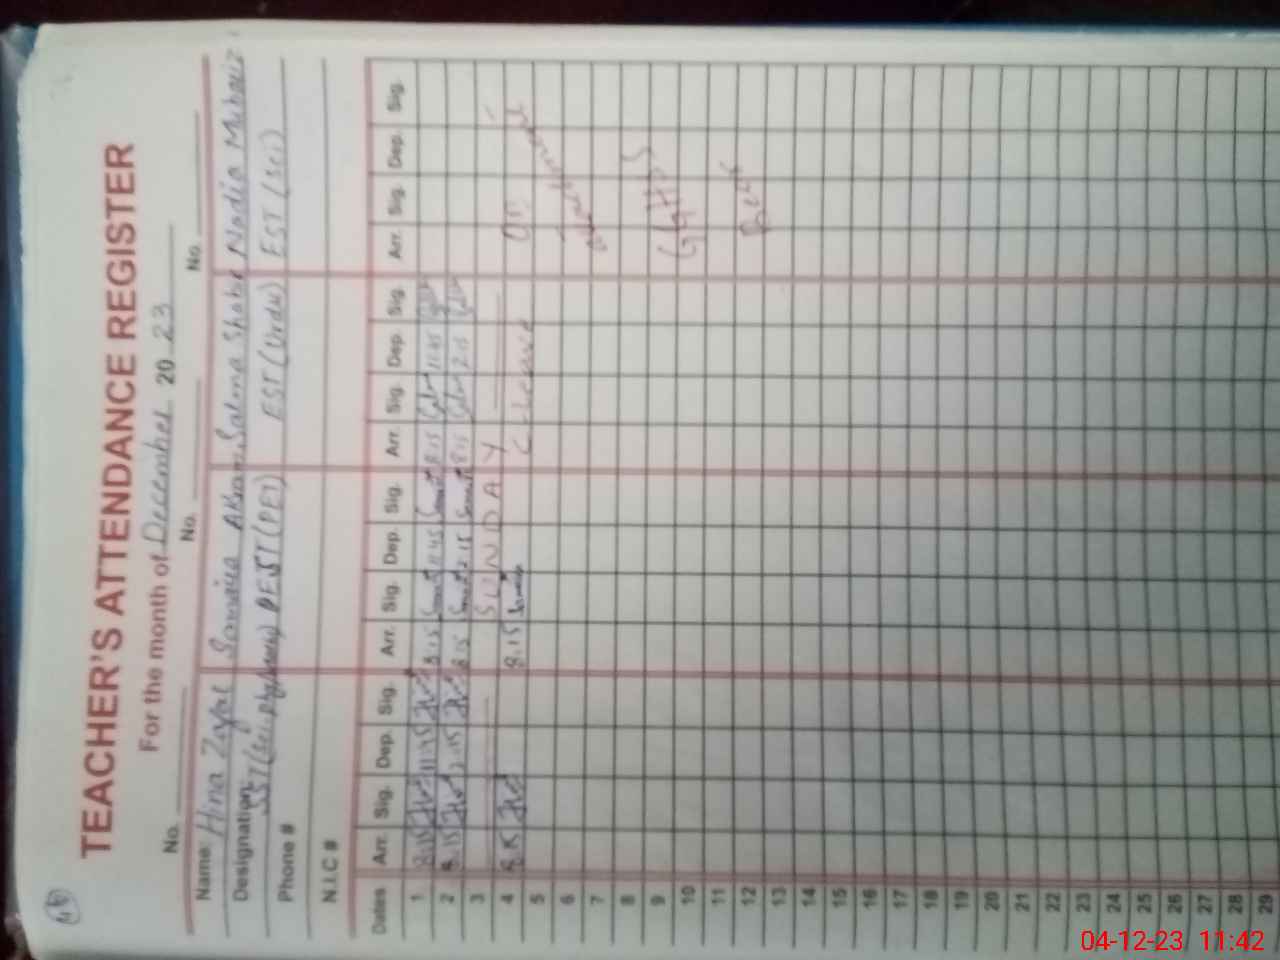 TEACHER'S ATTENDANCE REGISTER
For the month of December 2023
No. No. No.
Name: Hina Zafar Samina Akram Salma Shabir Nadia Mubariz
Designation: SST (Sci. PET) EST (Urdu) EST (Sci)
Phone #
N.I.C #
Dates Arr. Sig. Dep. Sig. Arr. Sig. Dep. Sig. Arr. Sig. Dep. Sig. Arr. Sig. Dep. Sig.
1 8.15 11.45 8.15 11.45 8.15 11.45
2 8.15 2.15 8.15 2.15 8.15 2.15
3 SUNDAY
4 8.15 8.15 C-Leave On
5
6
7
8
9 GGHSS
10
11
12
13
14
15
16
17
18
19
20
21
22
23
24
25
26
27
28
29
04-12-23 11:42